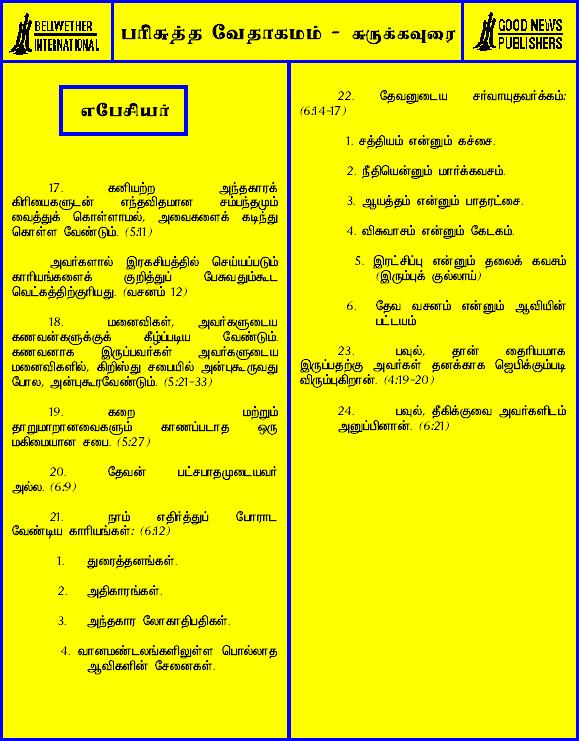 BELLWETHER
INTERNATIONAL
பரிசுத்த வேதாகமம் - சுருக்கவுரை
GOOD NEWS
PUBLISHERS
எபேசியர்
17. கனியற்ற அந்தகாரக்
கிரியைகளுடன் எந்தவிதமான சம்பந்தமும்
வைத்துக் கொள்ளாமல், அவைகளைக் கடிந்து
கொள்ள வேண்டும். (5:11)
அவர்களால் இரகசியத்தில் செய்யப்படும்
காரியங்களைக் குறித்துப் பேசுவதும்கூட
வெட்கத்திற்குரியது. (வசனம் 12)
18. மனைவிகள், அவர்களுடைய
கணவன்களுக்குக் கீழ்ப்படிய வேண்டும்.
கணவனாக இருப்பவர்கள் அவர்களுடைய
மனைவிகளில், கிறிஸ்து சபையில் அன்புகூருவது
போல, அன்புகூரவேண்டும். (5:21-33)
19. கறை மற்றும்
தாறுமாறானவைகளும் காணப்படாத ஒரு
மகிமையான சபை. (5:27)
20. தேவன் பட்சபாதமுடையவர்
அல்ல. (6:9)
21. நாம் எதிர்த்துப் போராட
வேண்டிய காரியங்கள்: (6:12)
1. துரைத்தனங்கள்.
2. அதிகாரங்கள்.
3. அந்தகார லோகாதிபதிகள்.
4. வானமண்டலங்களிலுள்ள பொல்லாத
ஆவிகளின் சேனைகள்.
22. தேவனுடைய சர்வாயுதவர்க்கம்:
(6:14-17)
1. சத்தியம் என்னும் கச்சை.
2. நீதியென்னும் மார்க்கவசம்.
3. ஆயத்தம் என்னும் பாதரட்சை.
4. விசுவாசம் என்னும் கேடகம்.
5. இரட்சிப்பு என்னும் தலைக் கவசம்
(இரும்புக் குல்லாய்)
6. தேவ வசனம் என்னும் ஆவியின்
பட்டயம்
23. பவுல், தான் தைரியமாக
இருப்பதற்கு அவர்கள் தனக்காக ஜெபிக்கும்படி
விரும்புகிறான். (4:19-20)
24. பவுல், தீகிக்குவை அவர்களிடம்
அனுப்பினான். (6:21)